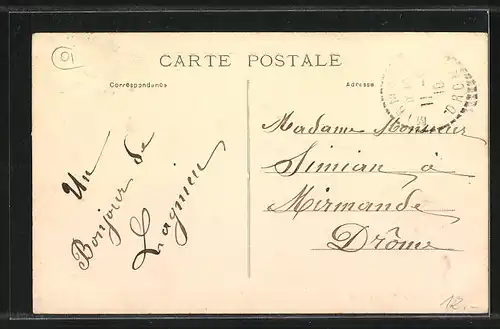 01
CARTE POSTALE
Correspondance
Adresse
Un
Bonjour de
Lagnieu
Madame Monnier
Simian à
Mirmande
Drôme
11
10
DROM
12.-